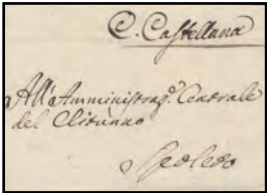 C. Castellana
All'Amministrag.e Centrale
del Clitunno
Spoleto